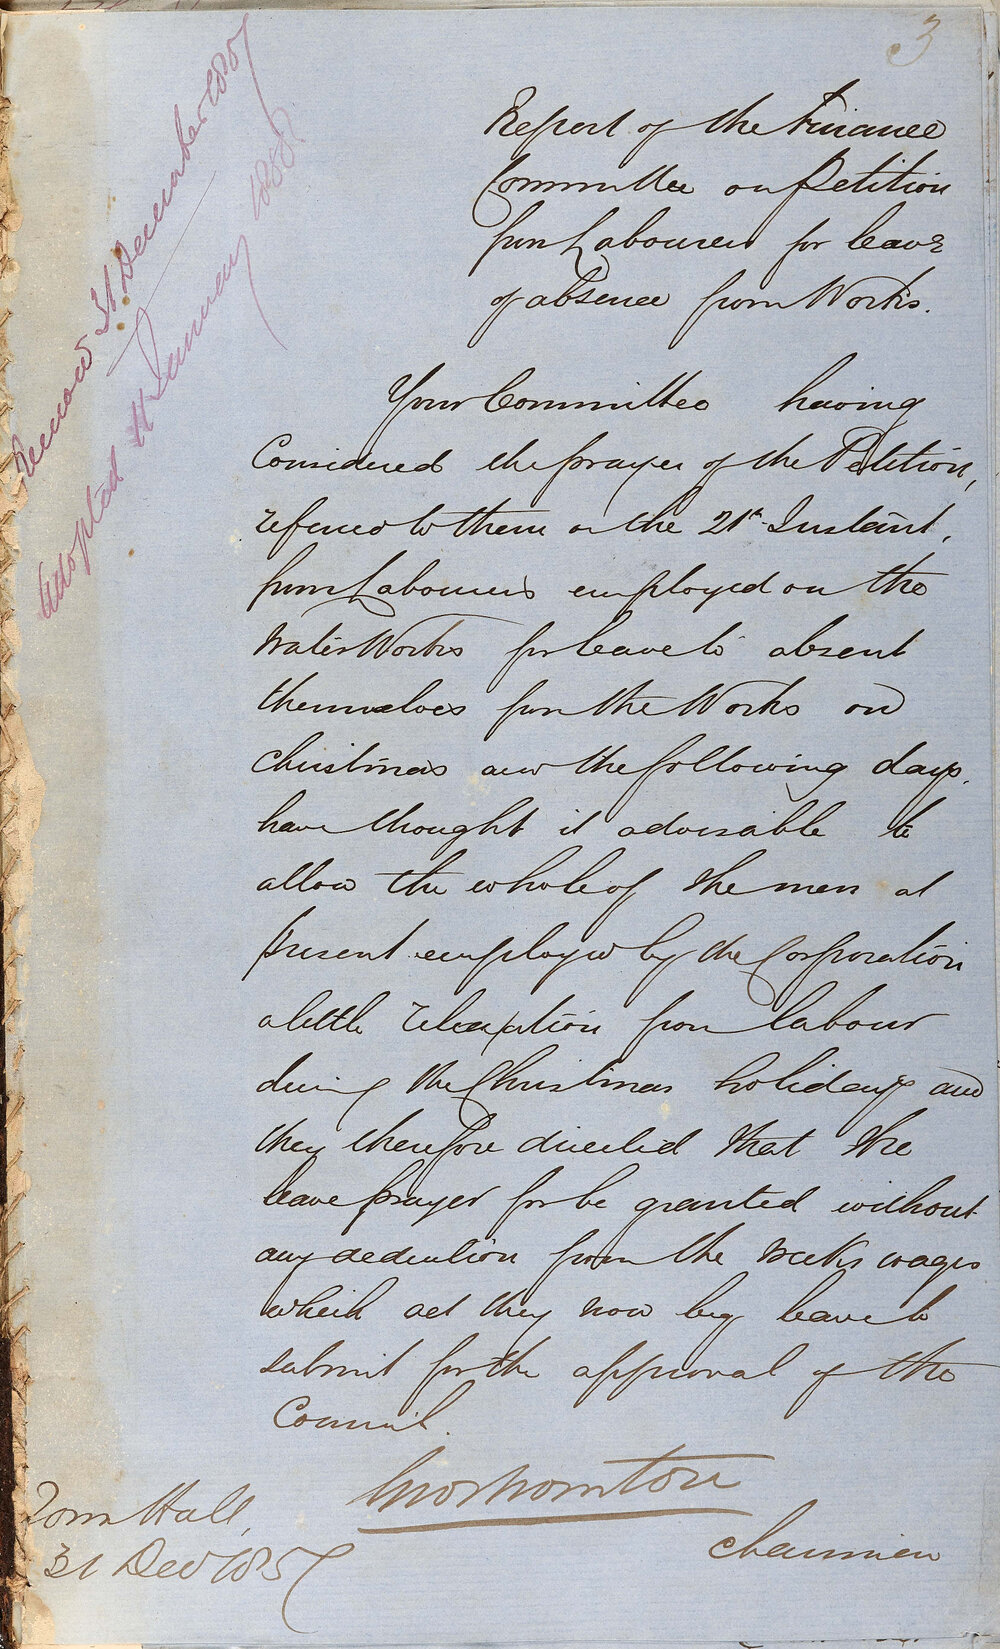 3
Received 31 December 1857
Adopted 11 January 1858
Report of the Finance
Committee on Petition
from Labourers for leave
of absence from Works.
Your Committee having
Considered the prayer of the Petition,
referred to them on the 21st Instant,
from Labourers employed on the
Water Works for leave to absent
themselves from the Works on
Christmas and the following days.
have thought it advisable to
allow the whole of the men at
present employed by the Corporation
a little relaxation from labour
during the Christmas holidays and
they therefore directed that the
leave prayed for be granted without
any deduction from the weeks wages
which act they now beg leave to
submit for the approval of the
Council.
Geo Thornton
Chairman
Town Hall,
31 Decr 1857